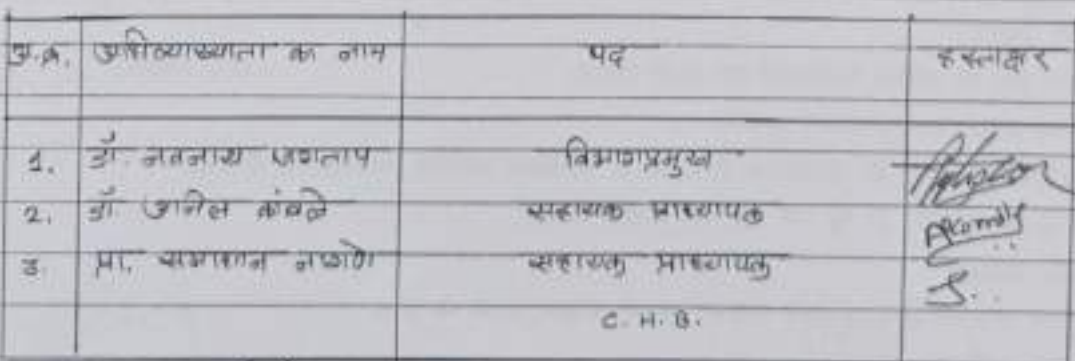 अ.क्र. अधिव्याख्याता का नाम पद हस्ताक्षर
1. डॉ. नवनाथ जगताप विभागप्रमुख
2. डॉ. अनिल कांबळे सहायक प्राध्यापक
3. प्रा. समाधान सहायक प्राध्यापक
C. H. B.